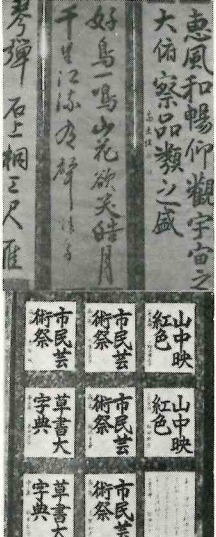 惠風和暢仰觀宇宙之
大俯察品類之盛
好鳥一鳴山花欲笑皓月
千里江流有聲
琴彈石上桐之尺雅
山中映
紅色
市民芸
術祭
市民芸
術祭
山中映
紅色
市民芸
術祭
草書大
字典
市民芸
術祭
草書大
字典